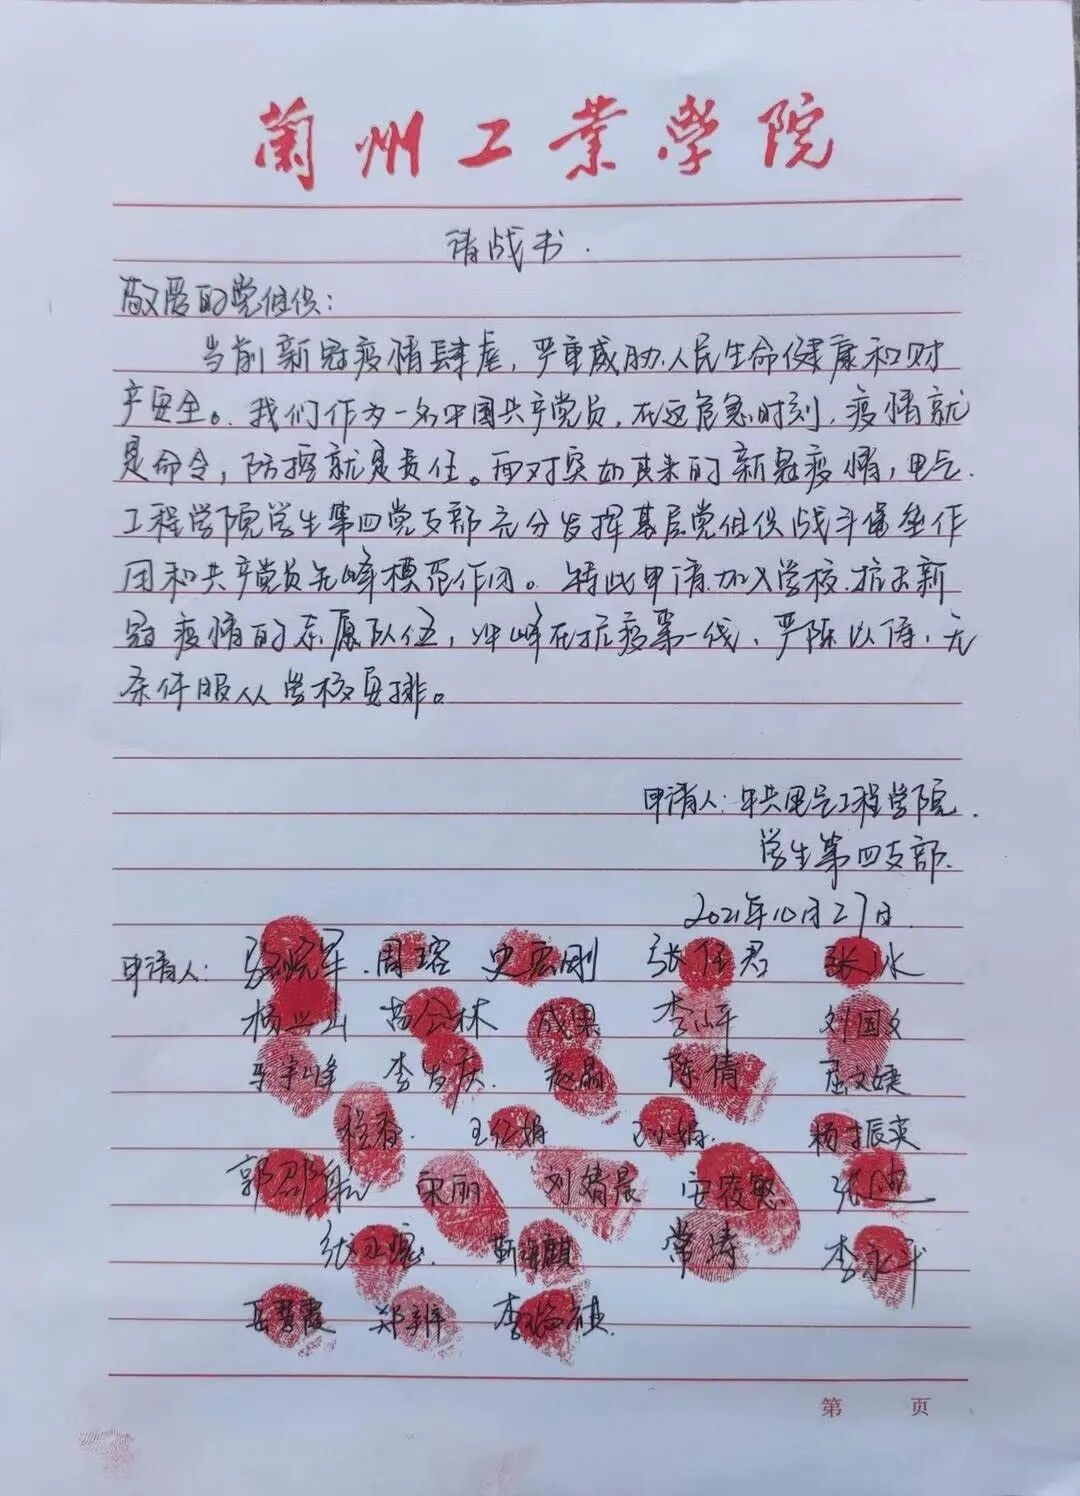 兰州工业学院
请战书.
敬爱的党组织：
当前新冠疫情肆虐，严重威胁人民生命健康和财
产安全。我们作为一名中国共产党员，在这危急时刻，疫情就
是命令，防控就是责任。面对突如其来的新冠疫情，电气
工程学院学生第四党支部充分发挥基层党组织战斗堡垒作
用和共产党员先峰模范作用。特此申请加入学校抗击新
冠疫情的志愿队伍，冲峰在抗疫第一线，严阵以待，无
条件服从学校安排。
申请人：中共电气工程学院
学生第四支部.
2021年10月27日
申请人： 周瑢 史宏刚 张任君 张冰
杨兴山 苗全林 成果 李小平 刘国文
李发庆 赵晶 陈倩 屈文婕
程香 王红娟 王小娟 杨振英
郭邵航 宋丽 刘婧晨 张旭
常涛 李永平
岳慧霞 郑辨
第 页